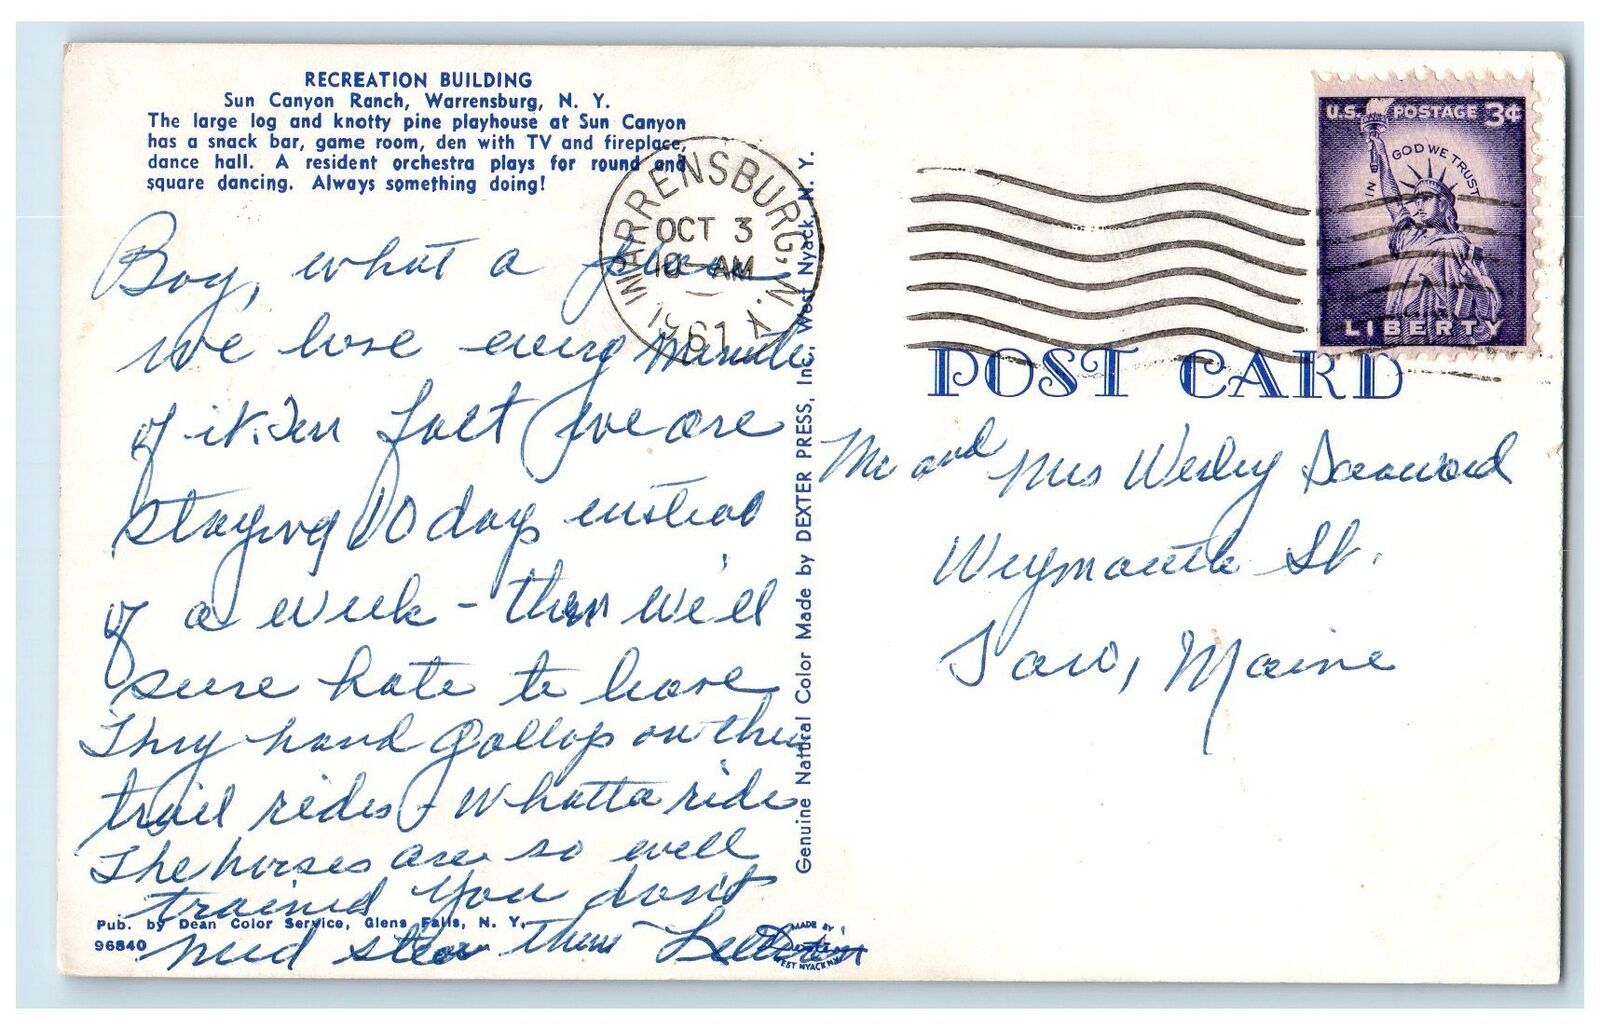 RECREATION BUILDING
Sun Canyon Ranch, Warrensburg, N. Y.
The large log and knotty pine playhouse at Sun Canyon
has a snack bar, game room, den with TV and fireplace,
dance hall. A resident orchestra plays for round and
square dancing. Always something doing!
Boy, what a place
we love every minute
of it. In fact we are
staying 10 days instead
of a week - then we'll
sure hate to leave
They hand gallop on the
trail rides - Whatta ride
The horses are so well
trained you don't
need steer them
Pub. by Dean Color Service, Glens Falls, N. Y.
96840
MADE BY
Dexter
WEST NYACK N.Y.
Genuine Natural Color Made by DEXTER PRESS, Inc., West Nyack, N. Y.
WARRENSBURG, N. Y.
OCT 3
10 AM
1961
U.S. POSTAGE 3¢
IN GOD WE TRUST
LIBERTY
POST CARD
Mr and Mrs Wesley
Weymouth St.
Saco, Maine